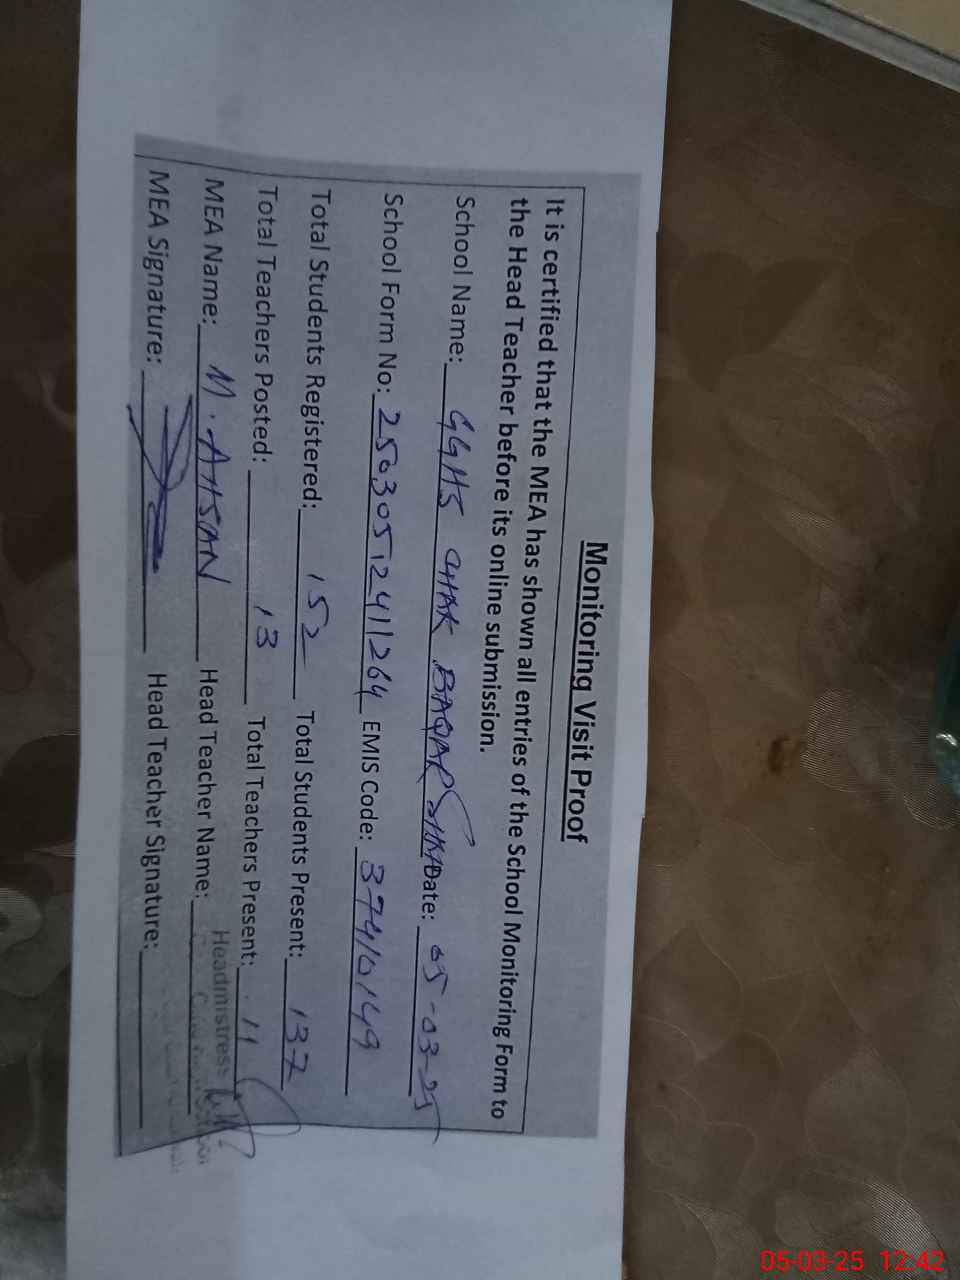 Monitoring Visit Proof
It is certified that the MEA has shown all entries of the School Monitoring Form to
the Head Teacher before its online submission.
School Name: GGHS CHAK BAQAR SHAH Date: 05-03-25
School Form No: 25030512411264 EMIS Code: 37410149
Total Students Registered: 152 Total Students Present: 137
Total Teachers Posted: 13 Total Teachers Present: 11
MEA Name: M. AHSAN Head Teacher Name: Headmistress
MEA Signature: Head Teacher Signature:
05-03-25 12:42